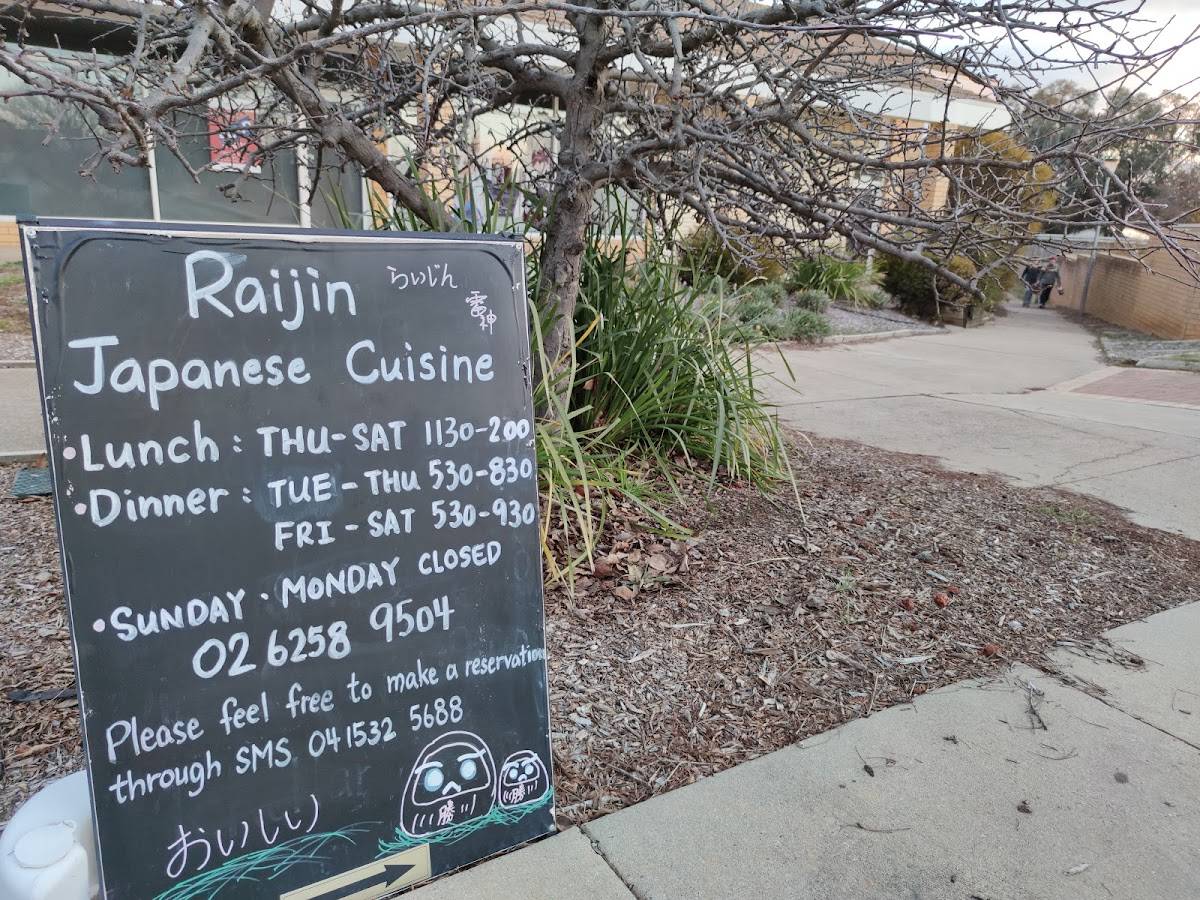 Raijin らいじん
雷神
Japanese Cuisine
• Lunch : THU-SAT 1130-200
• Dinner : TUE-THU 530-830
FRI-SAT 530-930
• SUNDAY · MONDAY CLOSED
02 6258 9504
Please feel free to make a reservation
through SMS 041532 5688
おいしい
勝 勝